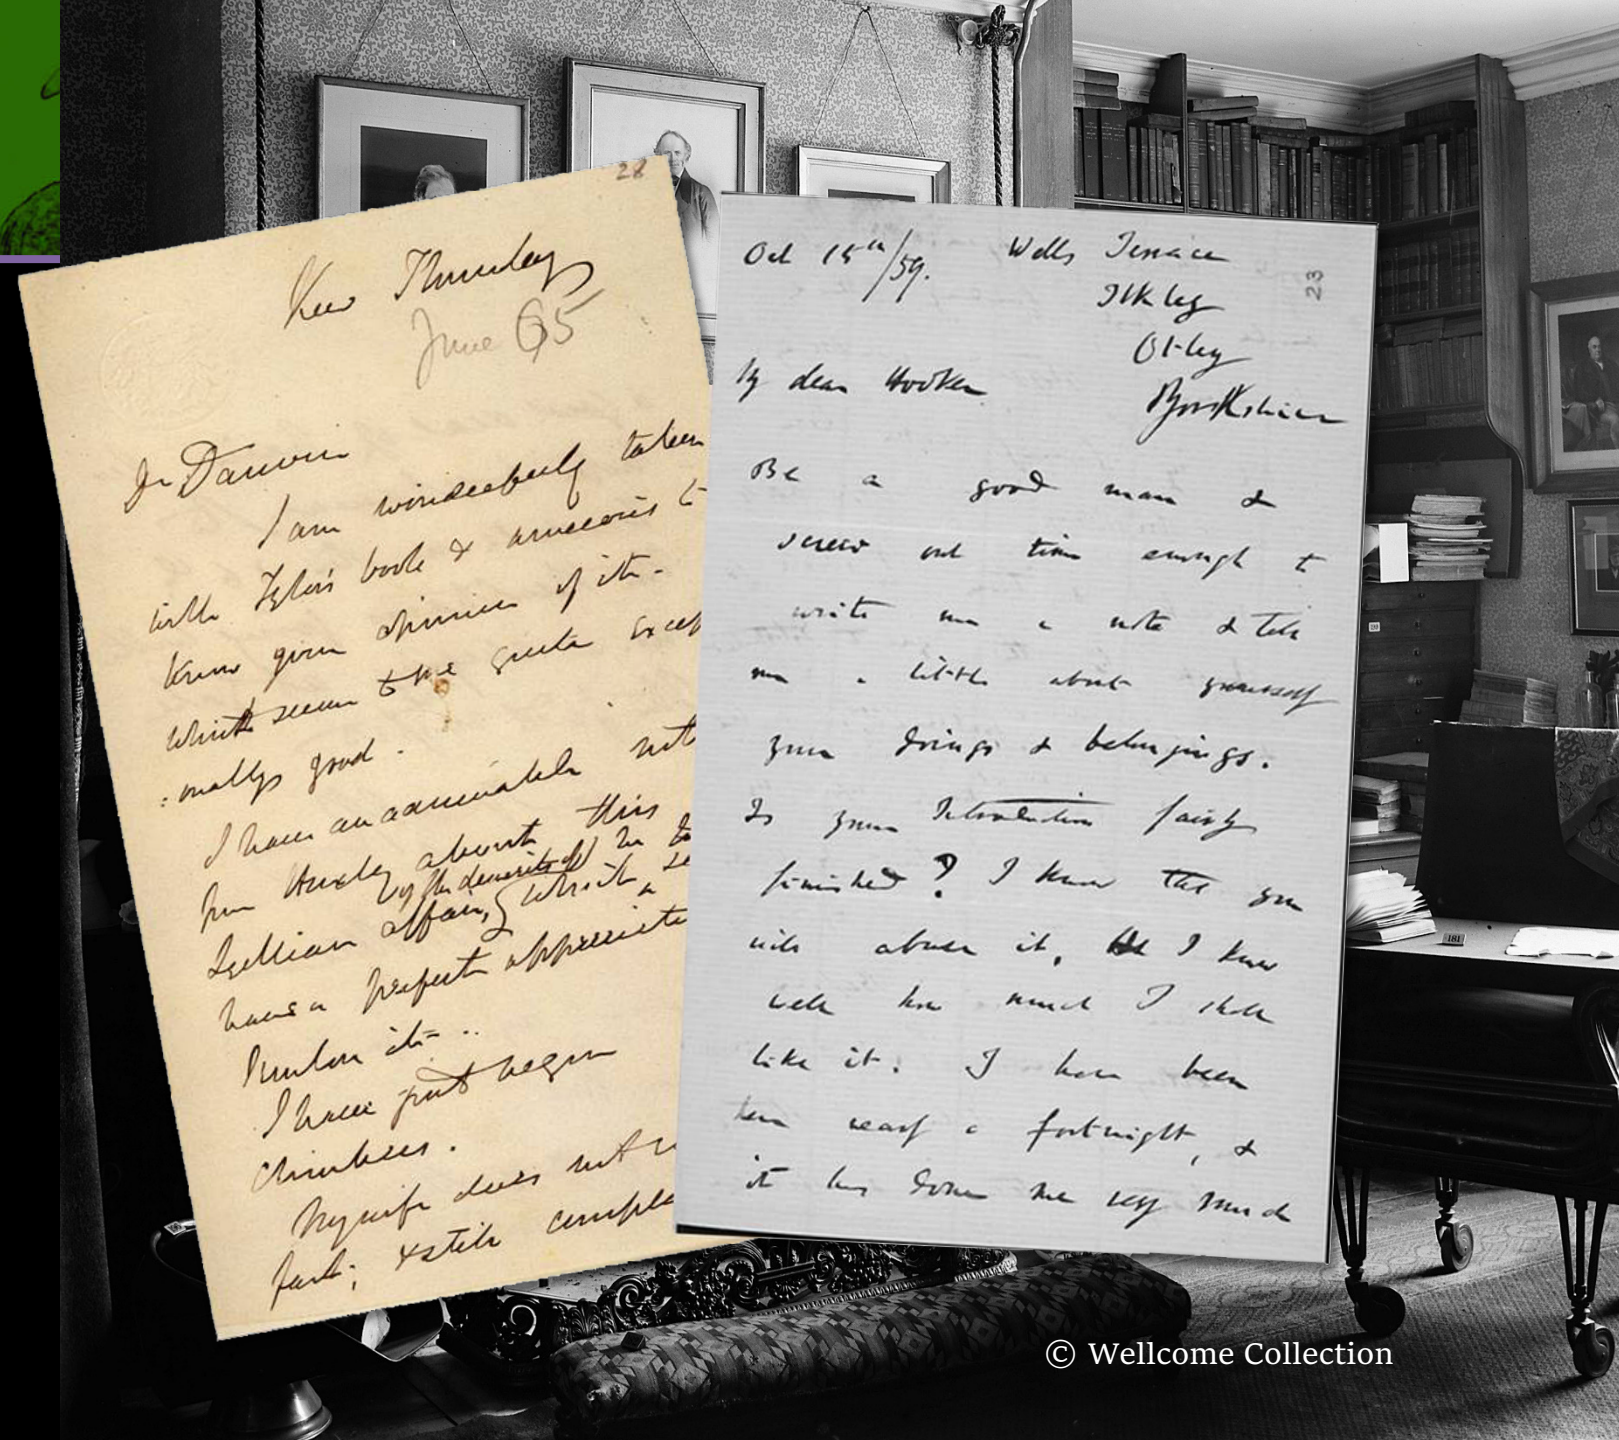 28
Kew Thursday
June 65
Dr Darwin
I am wonderfully taken
with Tylor's book & anxious to
know your opinion of it.—
which seems to me quite excep
:onally good.
I have an admirable
from Huxley about this
Lyellian affair, which
of the demerits of
have a perfect
I have just begun
My wife does not
& still
Oct 15th/59.
Wells Terrace
23
Ilkley
Otley
Yorkshire
My dear Hooker
Be a good man &
screw out time enough to
write me a note & tell
me a little about yourself
your doings & belongings.
Is your Introduction fairly
finished? I know that you
will abuse it, & I know
well how much I shall
like it. I have been
here nearly a fortnight, &
it has done me very much
181
© Wellcome Collection